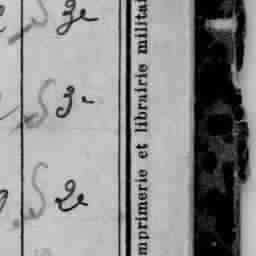 S 3e
S 3e
S 2e
mprimerie et librairie milita